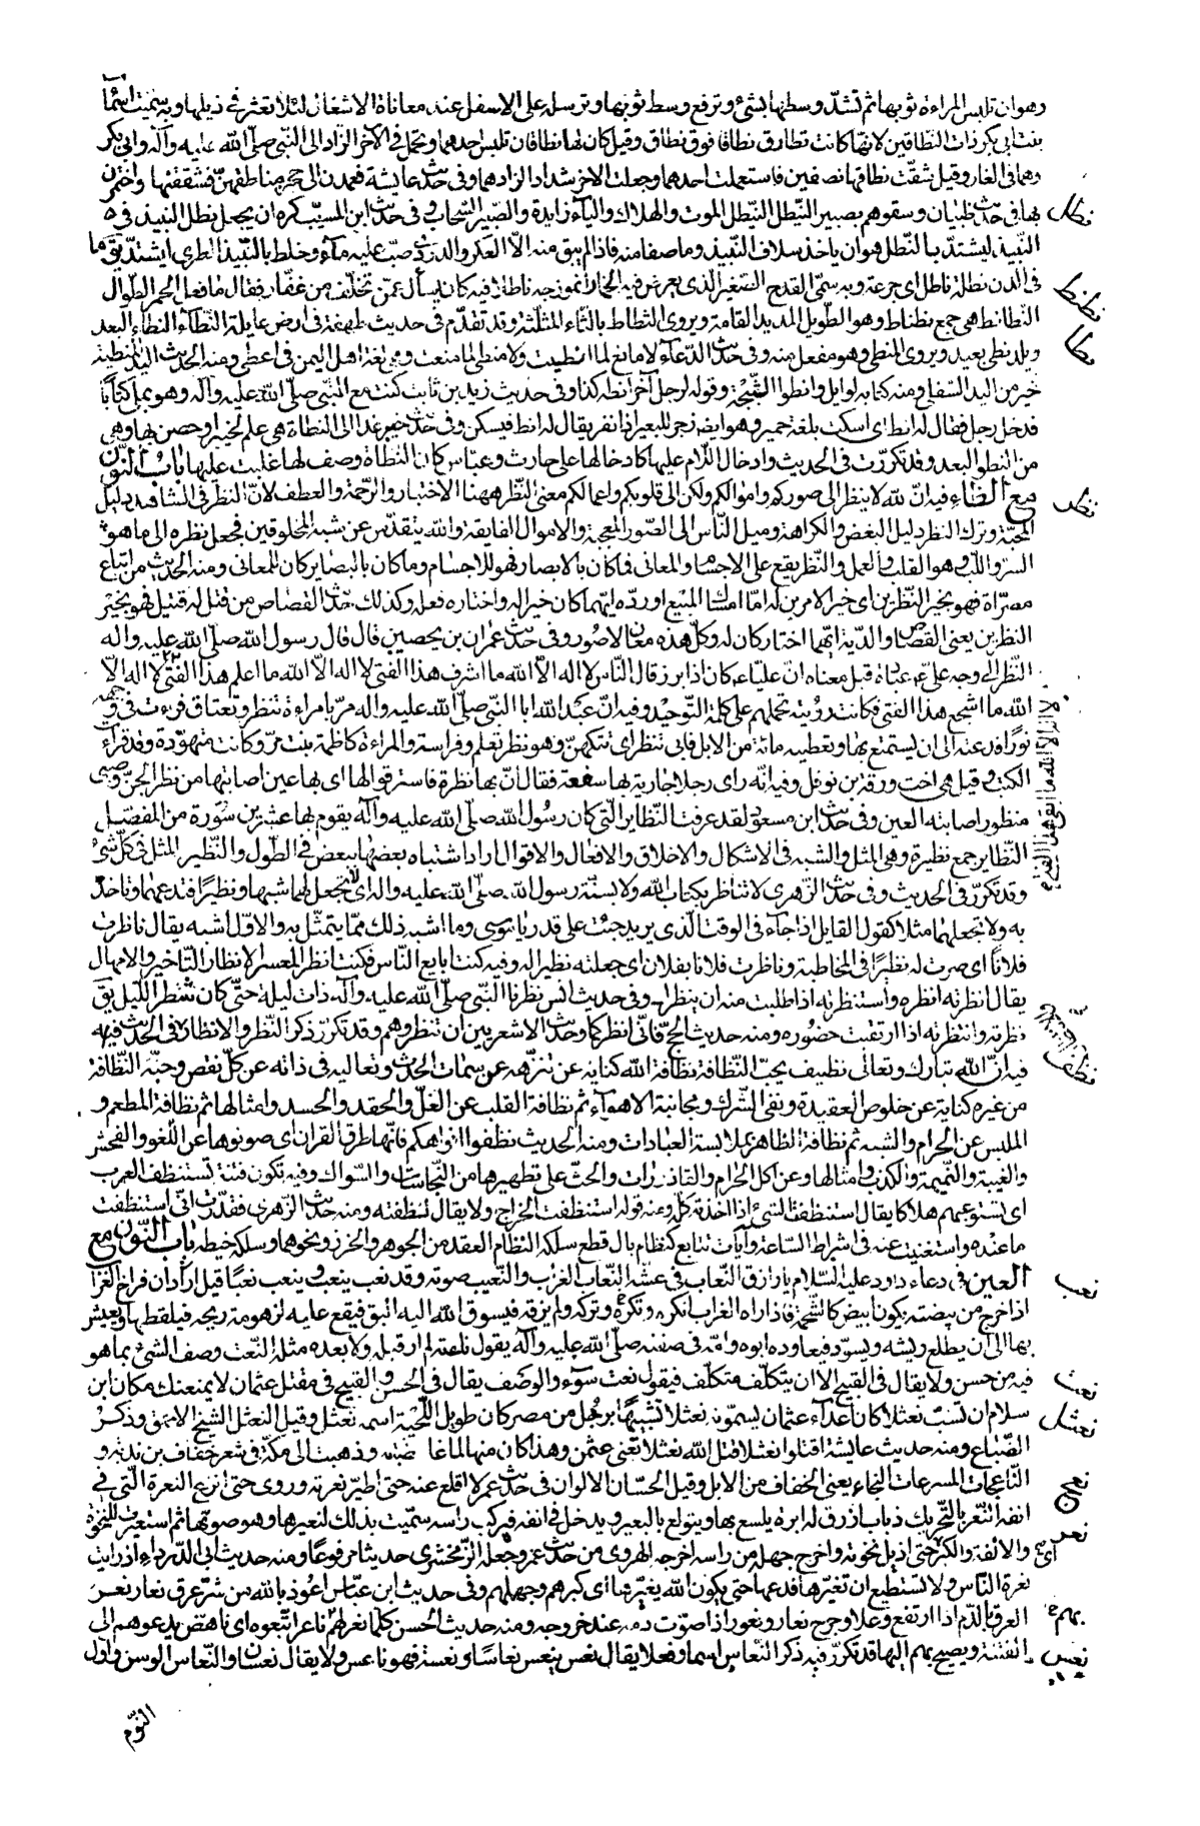 وهو ان تلبس المراءة ثوبها ثم تشدّ وسطها بشئ وترفع وسط ثوبها وترسله على الاسفل عند معاناة الاشغال لئلا تعثر فى ذيلها وبه سمّيت اسمآ
بنت ابى بكر ذات النطاقين لانّها كانت تطارق نطاقا فوق نطاق وقيل كان لها نطاقان تلبس احدهما وتحمل فى الآخر الزاد الى النّبى صلّى الله عليه وآله وابى بكر
وهما فى الغار وقيل شقّت نطاقها نصفين فاستعملت احدهما وجعلت الاخر شداد الزادهما وفى حديث عايشة فعمدن الى حجز مناطقهنّ فشققنها واختمرن
بها فى حديث ظبيان وسقوهم بصبير النيطل النيطل الموت والهلاك والياء زايدة والصّبير السّحاب فى حديث ابن المسيّب كره ان يجعل نطل النبيذ فى
النّبيذ ليشتدّ بالنّطل هو ان ياخذ سلاف النّبيذ وما صفا منه فاذا لم يبق منه الّا العكر والدردى صبّ عليه مآء وخلط بالنّبيذ الطرى ليشتدّ يقّ ما
فى الدن نطلة ناطل اى جرعة وبه سمّى القدح الصّغير الذى يعرض فيه الخمّار انموذجه ناطلا فيه كان يسأل عمّن تخلّف من غفّار فقال ما فعل الحمر الطّوال
النطانط هى جمع نظناط وهو الطّويل المديد القامة ويروى الثطاط بالثآء المثلّثة وقد تقدّم فى حديث طهفة فى ارض غايلة النّطآء النطاء البعد
وبلد نطى بعيد ويروى المنطى وهو مفعل منه وفى حديث الدّعآء لا مانع لما انطيت ولا منطى لما منعت وهى لغة اهل اليمن فى اعطى ومنه الحديث اليد المنطية
خير من اليد السّفلى ومنه كتابه لوايل وانطوا الثّبجة وقوله لرجل آخر انطه كذا وفى حديث زيد بن ثابت كنت مع النّبى صلّى الله عليه وآله وهو يملى كتابًا
فدخل رجل فقال له انط اى اسكت بلغة حمير وهو ايضا زجر للبعير اذا نفر يقال له انط فيسكن وفى حديث خيبر غدا الى النطاة هى علم لخيبر او حصن بها وهى
من النطو البعد وقد تكرّرت فى الحديث وادخال اللّام عليها كادخالها على حارث وعبّاس كان النطاة وصف لها غلبت عليها باب النّون
مع الظّاء فيه انّ الله لا ينظر الى صوركم واموالكم ولكن الى قلوبكم واعمالكم معنى النّظر ههنا الاختبار والرّحمة والعطف لانّ النظر فى الشاهد دليل
المحبّة وترك النظر دليل البغض والكراهة وميل النّاس الى الصّور المعجبة والاموال الفايقة والله يتقدّس عن شبه المخلوقين فجعل نظره الى ما هو
السرّ واللّب وهو القلب والعمل والنّظر يقع على الاجسام والمعانى فما كان بالابصار فهو للاجسام وما كان بالبصاير كان للمعانى ومنه الحديث من ابتاع
مصرّاة فهو بخير النّظرين اى خير الامرين له امّا امساك المبيع او ردّه ايّهما كان خيرا له واختاره فعله وكذلك حديث القصاص من قتل له قتيل فهو بخير
النظرين يعنى القصاص والدّية ايّهما اختار كان له وكلّ هذه معان لا صُور وفى حديث عمران بن حصين قال قال رسول الله صلّى الله عليه وآله
النّظر الى وجه علىّ ع عبادة قيل معناه انّ عليّا ع كان اذا برز قال النّاس لا اله الّا الله ما اشرف هذا الفتى لا اله الّا الله ما اعلم هذا الفتى لا اله الّا
الله ما اشجع هذا الفتى فكانت رؤيته تحملهم على كلمة التّوحيد وفيه انّ عبد الله ابا النّبى صلّى الله عليه وآله مرّ بامراءة تنظر وتعتاف فراءت فى وجهه
نورًا فدعته الى ان يستمتع بها وتعطيه مائة من الابل فابى تنظر اى تتكهنّ وهو نظر تعلّم وفراسة والمراءة كاظمة بنت مرّ وكانت متهوّدة وقد قراءت
الكتب وقيل هى اخت ورقة بن نوفل وفيه انّه راى رجلا بجارية بها سفعة فقال انّ بها نظرة فاسترقوا لها اى بها عين اصابتها من نظر الجنّ وصبى
منظور اصابته العين وفى حديث ابن مسعود لقد عرفت النّظاير الّتى كان رسُول الله صلّى الله عليه وآله يقوم بها عشرين سُورة من المفصّل
النّظاير جمع نظيرة وهى المثل والشبه فى الاشكال والاخلاق والافعال والاقوال اراد اشتباه بعضها ببعض فى الطّول والنّظير المثل فى كلّ شئ
وقد تكرّر فى الحديث وفى حديث الزّهرى لا تناظر بكتاب الله ولا بسنّة رسول الله صلّى الله عليه وآله اى لا تجعل لهما شبها ونظيرًا فتدعهما وتاخذ
به ولا تجعلهما مثلا كقول القايل اذا جآء فى الوقت الّذى يريد جئت على قدر يا موسى وما اشبه ذلك ممّا يتمثّل به والاوّل اشبه يقال ناظرت
فلانًا اى صرت له نظيرًا فى المخاطبة وناظرت فلانا بفلان اى جعلته نظيرا له وفيه كنت ابايع النّاس فكنت انظر المعسر الانظار التّاخير والامهال
يقال انظرته انظره واستنظرته اذا طلبت منه ان ينظرك وفى حديث انس نظرنا النّبى صلّى الله عليه وآله ذات ليلة حتّى كان شطر اللّيل يقّ
نظرته وانتظرته اذا ارتقبت حضوره ومنه حديث الحجّ فانّى انظركما وحديث الاشعريين ان تنظروهم وقد تكرّر ذكر النّظر والانتظار فى الحديث
فيه انّ الله تبارك وتعالى نظيف يحبّ النّظافة نظافة الله كناية عن تنزّهه عن سمات الحدث وتعاليه فى ذاته عن كلّ نقص وحبّه النّظافة
من غيره كناية عن خلوص العقيدة ونفى الشّرك ومجانبة الاهوآء ثم نظافة القلب عن الغلّ والحقد والحسد وامثالها ثم نظافة المطعم و
الملبس عن الحرام والشبه ثم نظافة الظاهر بملابسة العبادات ومنه الحديث نظّفوا افواهكم فانّها طرق القران اى صونوها عن اللّغو والفحش
والغيبة والنّميمة والكذب وامثالها وعن اكل الحرام والقاذورات والحثّ على تطهيرها من النّجاسات والسّواك وفيه تكون فتنة تستنظف العرب
اى تستوعبهم هلاكا يقال استنظفت الشئ اذا اخذته كلّه ومنه قوله استنظفت الخراج ولا يقال نظفته ومنه حديث الزّهرى فقدّرت انّى استنظفت
ما عنده واستغنيت عنه فى اشراط السّاعة وآيات تتابع كنظام بال قطع سلكه النظام العقد من الجوهر والخرز ونحوهما وسلكه خيطه باب النّون مع
العين فى دعاء داود عليه السّلام يا رازق النّعاب فى عشّه النّعاب الغراب والنّعيب صوته وقد نعب ينعب وينعب نعبًا قيل اراد ان فراخ الغراب
اذا خرج من بيضته يكون ابيض كالشّحمة فاذا راه الغراب انكره وتركه ولم يزقه فيسوق الله اليه البق فيقع عليه لزهومة ريحه فيلقطها ويعيش
بها الى ان يطلع ريشه ويسوّد فيعاوده ابوه وامّه فى صفته صلّى الله عليه وآله يقول ناعته لم ار قبله ولا بعده مثله النّعت وصف الشئ بما هو
فيه من حسن ولا يقال فى القبيح الا ان يتكلّف متكلّف فيقول نعت سوء والوصف يقال فى الحسن والقبيح فى مقتل عثمان لا يمنعنك مكان ابن
سلام ان تسبّ نعثلا كان اعدآء عثمان يسمّونه نعثلا تشبيهًا برجُل من مصر كان طويل اللّحية اسمه نعثل وقيل النعثل الشيخ الاحمق وذكر
الضّباع ومنه حديث عايشة اقتلوا نعثلا قتل الله نعثلا تعنى عثمن وهذا كان منها لما غاضبته وذهبت الى مكّة فى شعر خفاف بن ندبة و
النّاعجات المسرعات النجاء يعنى الخفاف من الابل وقيل الحسان الالوان فى حديث عمر لا اقلع عنه حتى اطيّر نعرته وروى حتى انزع النعرة الّتى فى
انفه النّعرة بالتّحريك ذباب ازرق له ابرة يلسع بها ويتولع بالبعير ويدخل فى انفه فيركب راسه سمّيت بذلك لنعيرها وهو صوتها ثم استعيرت للنّخوة
والانفة والكبر اى حتى ازيل نخوته واخرج جهله من راسه اخرجه الهروى من حديث عمر وجعله الزّمخشرى حديثا مرفوعًا ومنه حديث ابى الدّرداء اذا رايت
نعرة النّاس ولا تستطيع ان تغيّرها فدعها حتى يكون الله يغيّرها اى كبرهم وجهلهم وفى حديث ابن عبّاس اعُوذ بالله من شرّ عرق نعار نعر
العرق بالدّم اذا ارتفع وعلا وجرح نعار ونعور اذا صوّت دمه عند خروجه ومنه حديث الحسن كلّما نعر بهم ناعر اتّبعوه اى ناهض يدعوهم الى
الفتنة ويصيح بهم اليها قد تكرّر فيه ذكر النّعاس اسما وفعلا يقال نعس ينعس نعاسًا ونعسة فهو ناعس ولا يقال نعسان والنّعاس الوسن واول
النّوم
نطل
نطنط
نطا
نظر
نظف
نعب
نعت
نعثل
نعج
نعر
نعس